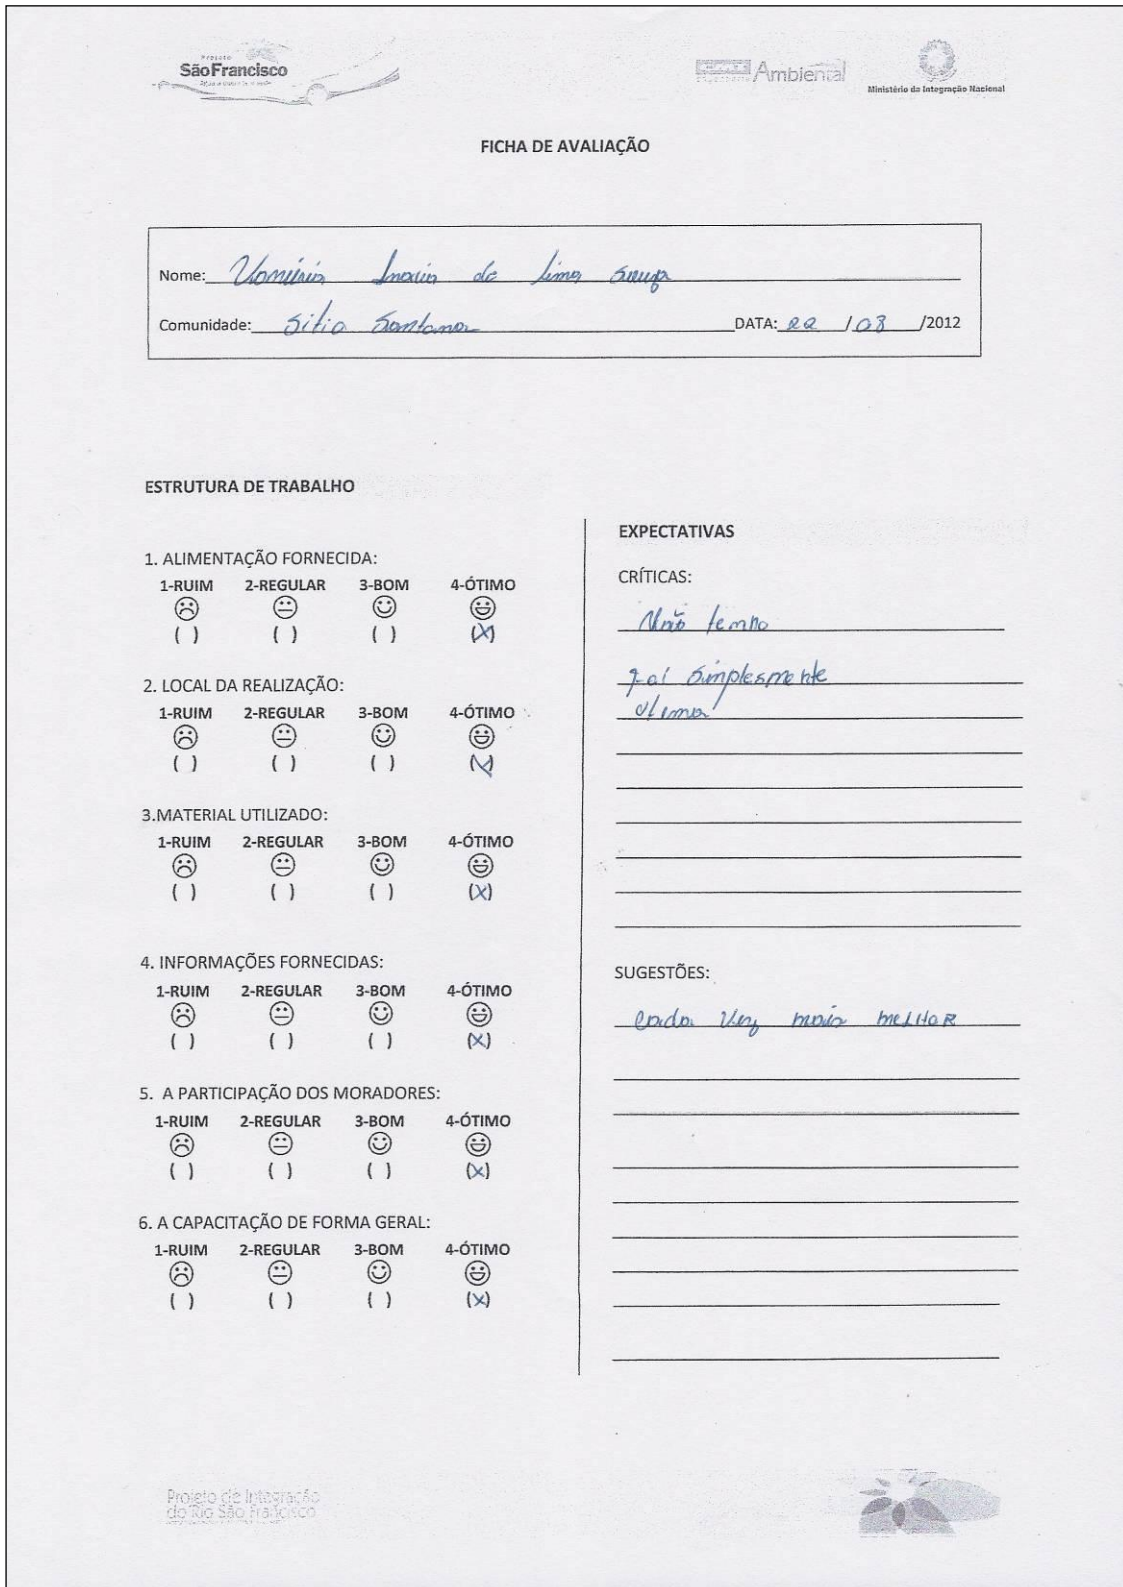 Projeto
São Francisco
Ambiental
Ministério da Integração Nacional
FICHA DE AVALIAÇÃO
Nome: de lima souza
Comunidade: Sitio Santana DATA: 22 /03 /2012
ESTRUTURA DE TRABALHO
1. ALIMENTAÇÃO FORNECIDA:
1-RUIM 2-REGULAR 3-BOM 4-ÓTIMO
( ) ( ) ( ) (X)
2. LOCAL DA REALIZAÇÃO:
1-RUIM 2-REGULAR 3-BOM 4-ÓTIMO
( ) ( ) ( ) (X)
3.MATERIAL UTILIZADO:
1-RUIM 2-REGULAR 3-BOM 4-ÓTIMO
( ) ( ) ( ) (X)
4. INFORMAÇÕES FORNECIDAS:
1-RUIM 2-REGULAR 3-BOM 4-ÓTIMO
( ) ( ) ( ) (X)
5. A PARTICIPAÇÃO DOS MORADORES:
1-RUIM 2-REGULAR 3-BOM 4-ÓTIMO
( ) ( ) ( ) (X)
6. A CAPACITAÇÃO DE FORMA GERAL:
1-RUIM 2-REGULAR 3-BOM 4-ÓTIMO
( ) ( ) ( ) (X)
EXPECTATIVAS
CRÍTICAS:
Não tenho
foi simplesmente
otima
SUGESTÕES:
cada vez mais melhor
Projeto de Integração
do Rio São Francisco